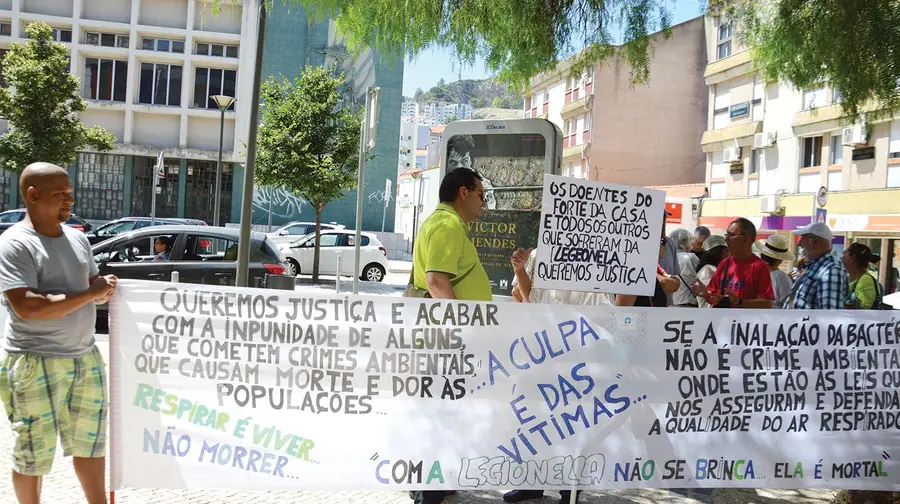 JCDecaux
VICTOR
MENDES
OS DOENTES DO
FORTE DA CASA
E TODOS OS OUTROS
QUE SOFRERAM DA
LEGIONELA!
QUEREMOS JUSTIÇA
QUEREMOS JUSTIÇA E ACABAR
COM A INPUNIDADE DE ALGUNS,
QUE COMETEM CRIMES AMBIENTAIS,
QUE CAUSAM MORTE E DOR ÀS
POPULAÇÕES...
RESPIRAR É VIVER...
NÃO MORRER...
"...A CULPA
É DAS
VÍTIMAS"...
SE A INALAÇÃO DA BACTÉR
NÃO É CRIME AMBIENTA
ONDE ESTÃO AS LEIS QU
NOS ASSEGURAM E DEFENDA
A QUALIDADE DO AR RESPIRADO
"COM A LEGIONELLA NÃO SE BRINCA... ELA É MORTAL"